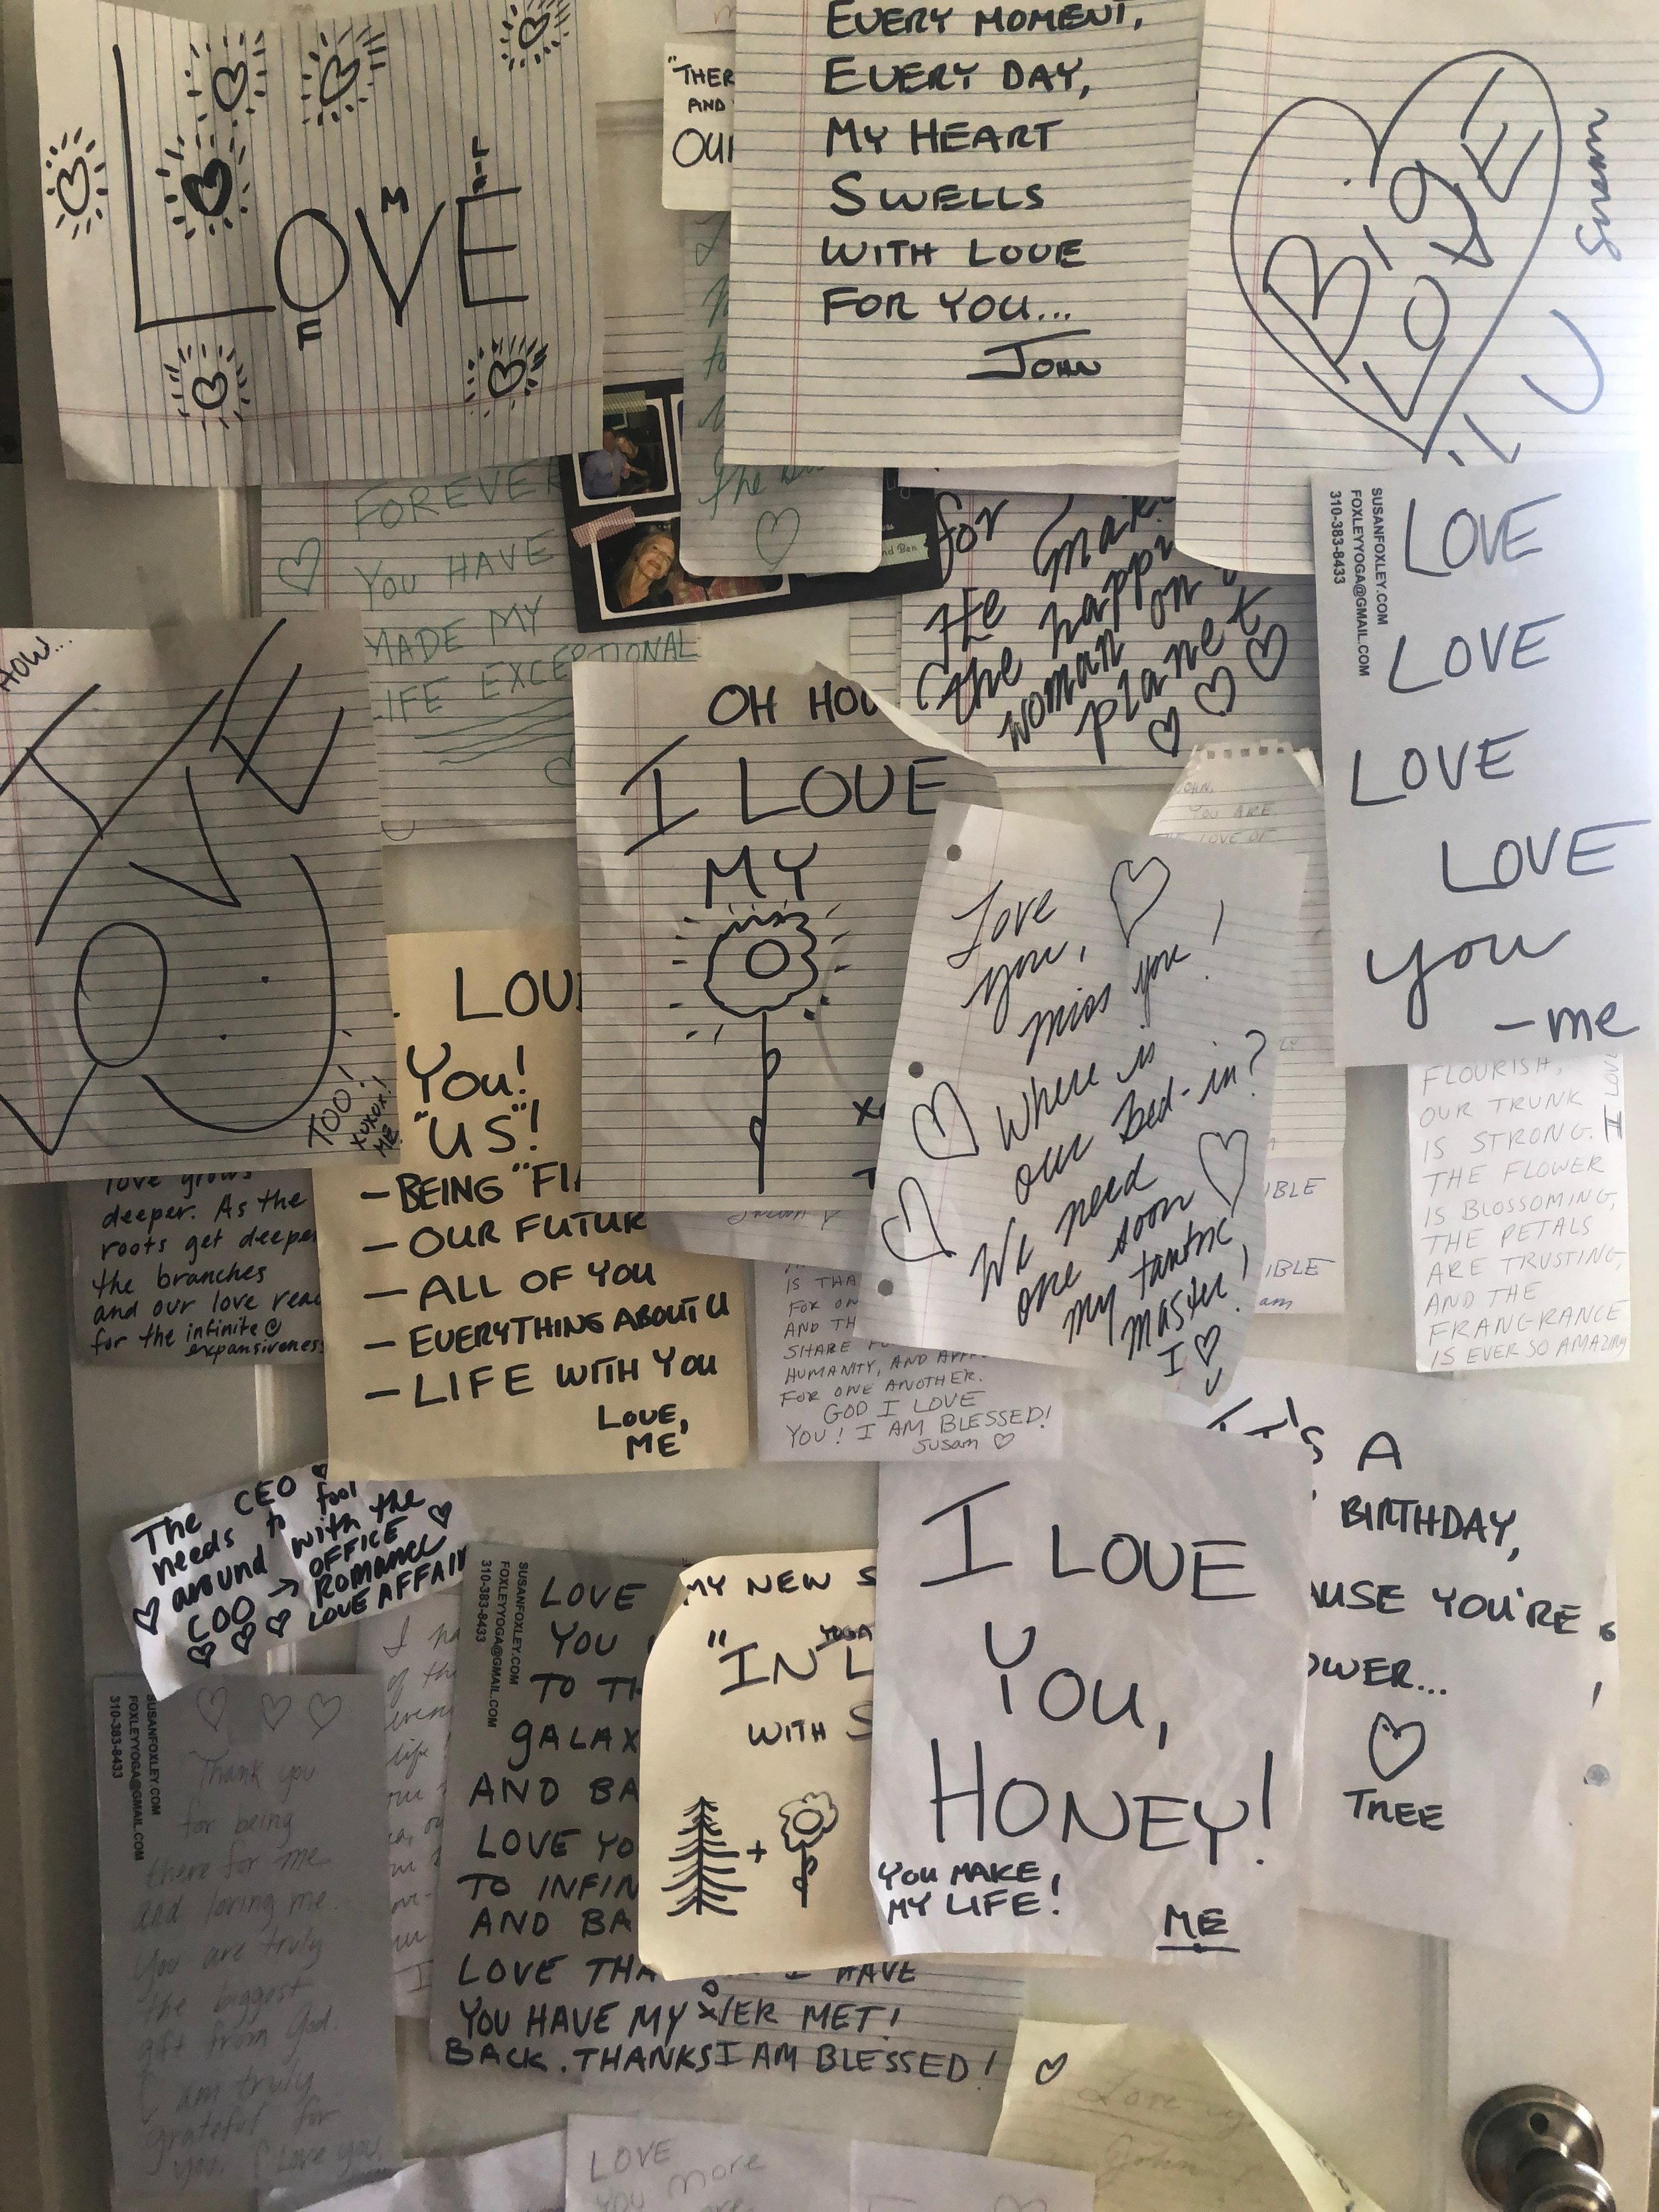 LOVE
F
M
"THER
AND
OUI
EVERY MOMENT,
EVERY DAY,
MY HEART
SWELLS
WITH LOVE
FOR YOU...
JOHN
Big
LOVE
4 U
Susan
FOREVER
YOU HAVE
MADE MY
LIFE EXCEPTIONAL
The
nd Ben
for
He
the happi
woman on
planet
SUSANFOXLEY.COM
FOXLEYYOGA@GMAIL.COM
310-383-8433
LOVE
LOVE
LOVE
LOVE
you
-me
HOW...
I
LOVE
U
TOO!
XOXOX!
ME
OH HOW
I LOVE
MY
YOU ARE
LOVE OF
Love
you,
miss you!
Where is
our Bed-in?
We need
one soon
my tantric
master!
I
U
LOVE
You!
"US"!
-BEING "FI
-OUR FUTUR
-ALL OF YOU
-EVERYTHING ABOUT U
-LIFE WITH YOU
LOVE,
ME
love grows
deeper. As the
roots get deeper
the branches
and our love reac
for the infinite @
expansiveness
IS THA
FOR ON
AND TH
SHARE
HUMANITY, AND
FOR ONE ANOTHER.
GOD I LOVE
YOU! I AM BLESSED!
Susan
IBLE
IBLE
am
FLOURISH,
OUR TRUNK
IS STRONG.
THE FLOWER
IS BLOSSOMING,
THE PETALS
ARE TRUSTING,
AND THE
FRANGRANCE
IS EVER SO AMAZING
NOT I
The CEO
needs to fool
around with the
COO → OFFICE
ROMANCE
LOVE AFFAIR
SUSANFOXLEY.COM
FOXLEYYOGA@GMAIL.COM
310-383-8433
Thank you
for being
there for me
and loving me.
You are truly
the biggest
gift from God.
I am truly
grateful for
you. I Love you,
SUSANFOXLEY.COM
FOXLEYYOGA@GMAIL.COM
310-383-8433
LOVE
YOU
TO TH
GALAX
AND BA
LOVE YO
TO INFIN
AND BA
LOVE THA I HAVE
YOU HAVE MY
VER MET!
BACK. THANKS
I AM BLESSED!
MY NEW S
YOGA
"IN L
WITH S
+
I LOVE
YOU,
HONEY!
YOU MAKE
MY LIFE!
ME
IT'S A
BIRTHDAY,
AUSE YOU'RE
OWER...
TREE
Love
John
LOVE
YOU more